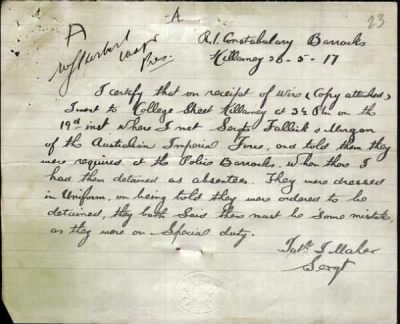 A
23
A
R.I. Constabulary Barracks
Killarney 26-5-17
Pres.
I certify that on receipt of wire (Copy attached)
I went to College Street Killarney at 3½ Pm on the
19th inst where I met Sergts Fallick & Morgan
of the Australian Imperial Force, and told them they
were required at the Police Barracks, when there I
had them detained as absentees. They were dressed
in Uniform, on being told they were ordered to be
detained, they both said there must be some mistake,
as they were on Special duty.
Maher
Sergt